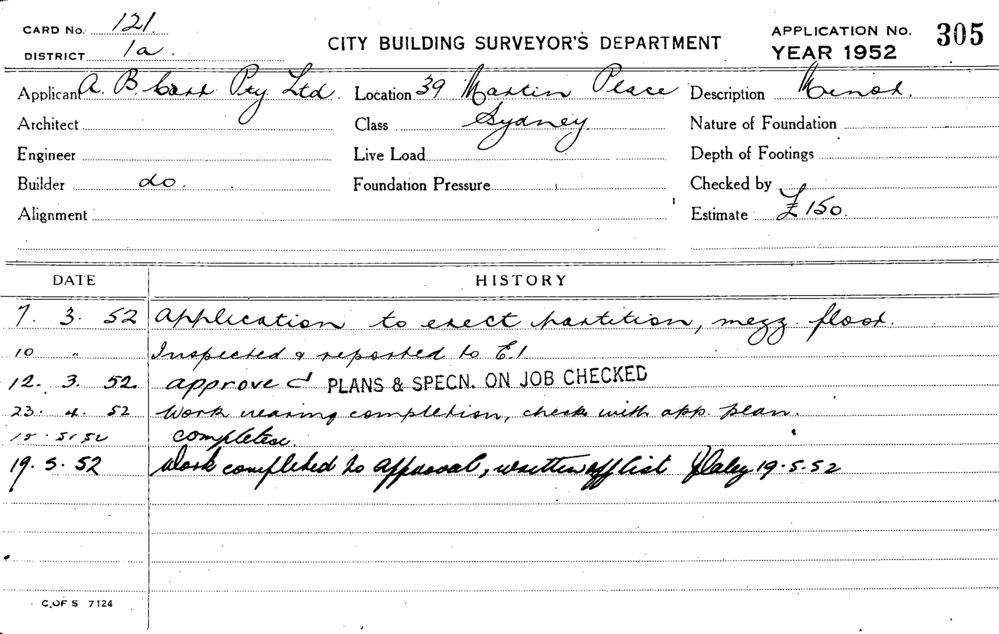 CARD No. 121.
DISTRICT 1a.
CITY BUILDING SURVEYOR'S DEPARTMENT
APPLICATION No. 305
YEAR 1952
Applicant A. B. Carr Pty Ltd. Location 39 Martin Place Description Minor.
Architect Class Sydney Nature of Foundation
Engineer Live Load Depth of Footings
Builder do. Foundation Pressure Checked by
Alignment Estimate £150.
DATE HISTORY
7. 3. 52 Application to erect partition, mezz floor.
10 " Inspected & reported to E.1.
12. 3. 52. approved PLANS & SPECN. ON JOB CHECKED
23. 4. 52 Work nearing completion, check with app. plan.
5. 52
19. 5. 52 Work completed to approval, written off list 19. 5. 52
C. OF S 7124